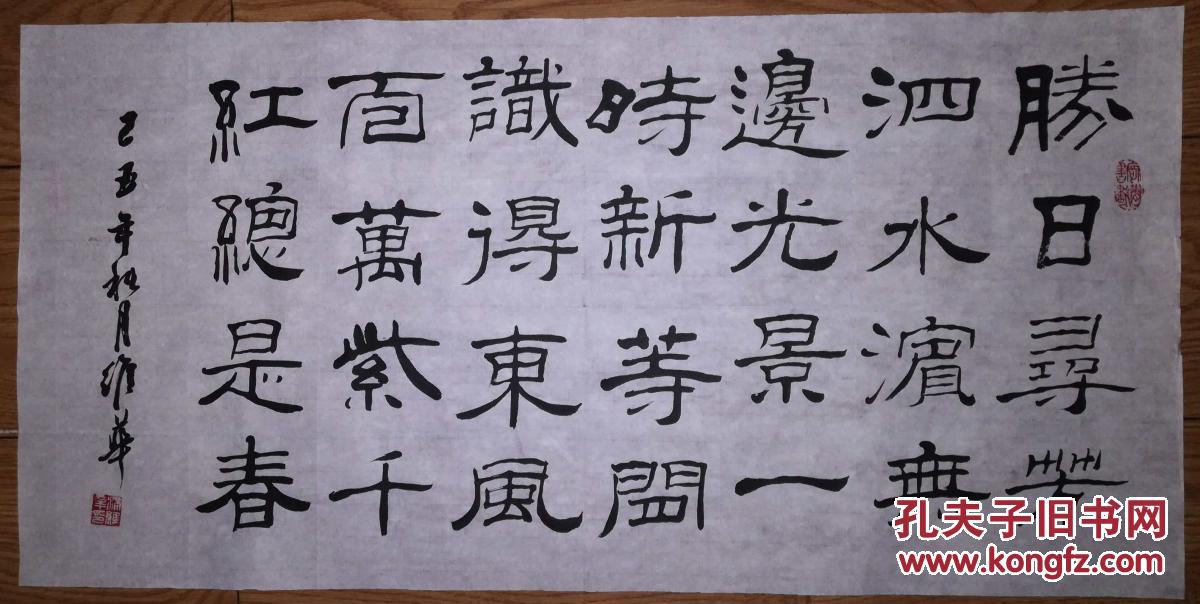 勝日尋芳
泗水濱無
邊光景一
時新等閒
識得東風
百萬紫千
紅總是春
己丑年秋月維華
孔夫子旧书网
www.kongfz.com